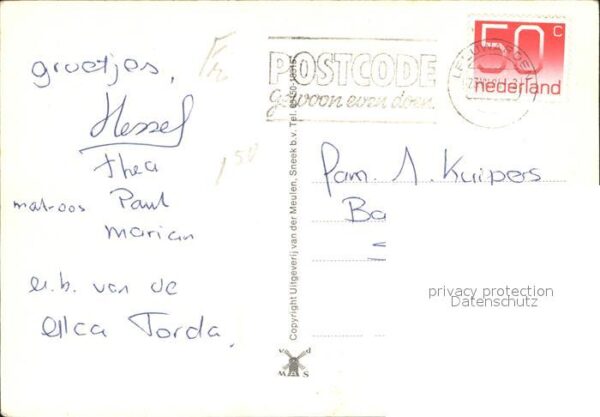 groetjes,
Hessel
thea
matroos Paul
Marian
a.b. van de
Alca Torda.
Fr
1 50
POSTCODE
gewoon even doen.
LEEUWARDEN
50 c
nederland
Copyright Uitgeverij van der Meulen, Sneek b.v. Tel.
v d
M S
Fam. A. Kuipers
Ba
privacy protection
Datenschutz